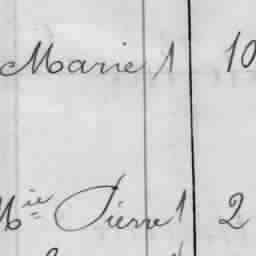 Marie 1 10
Mie Pierre 1 2